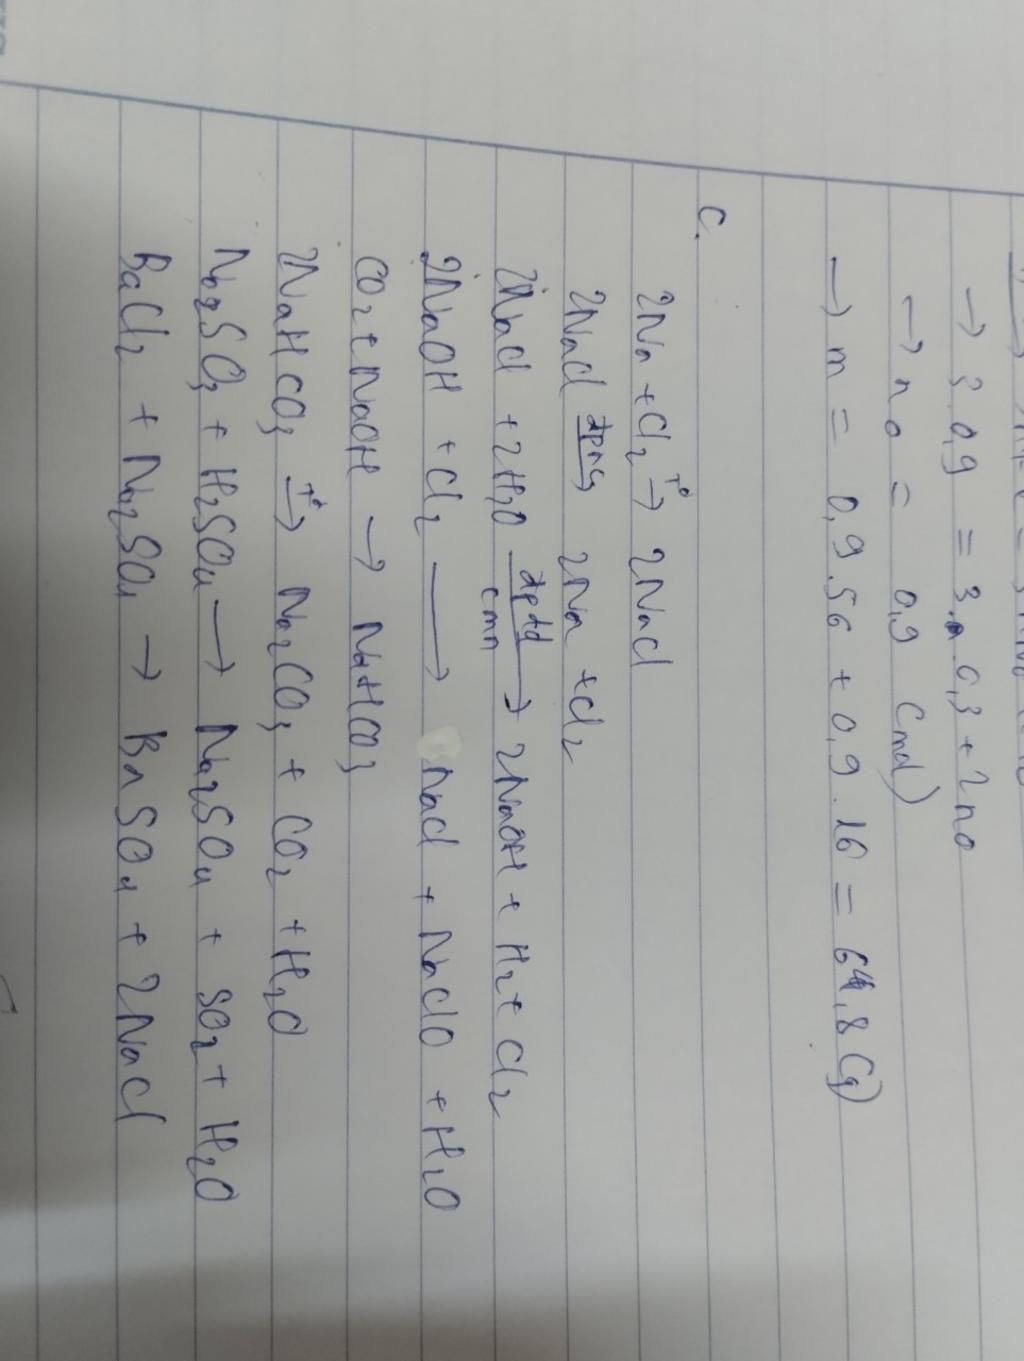 → 3.0,9 = 3.0,3 + 2no
→ no = 0,9 (mol)
→ m = 0,9.56 + 0,9.16 = 64,8(g)
c.
2Na + Cl2 -t°→ 2NaCl
2NaCl -đpnc→ 2Na + Cl2
2NaCl + 2H2O -đpdd cmn→ 2NaOH + H2 + Cl2
2NaOH + Cl2 → NaCl + NaClO + H2O
CO2 + NaOH → NaHCO3
2NaHCO3 -t°→ Na2CO3 + CO2 + H2O
Na2SO3 + H2SO4 → Na2SO4 + SO2 + H2O
BaCl2 + Na2SO4 → BaSO4 + 2NaCl